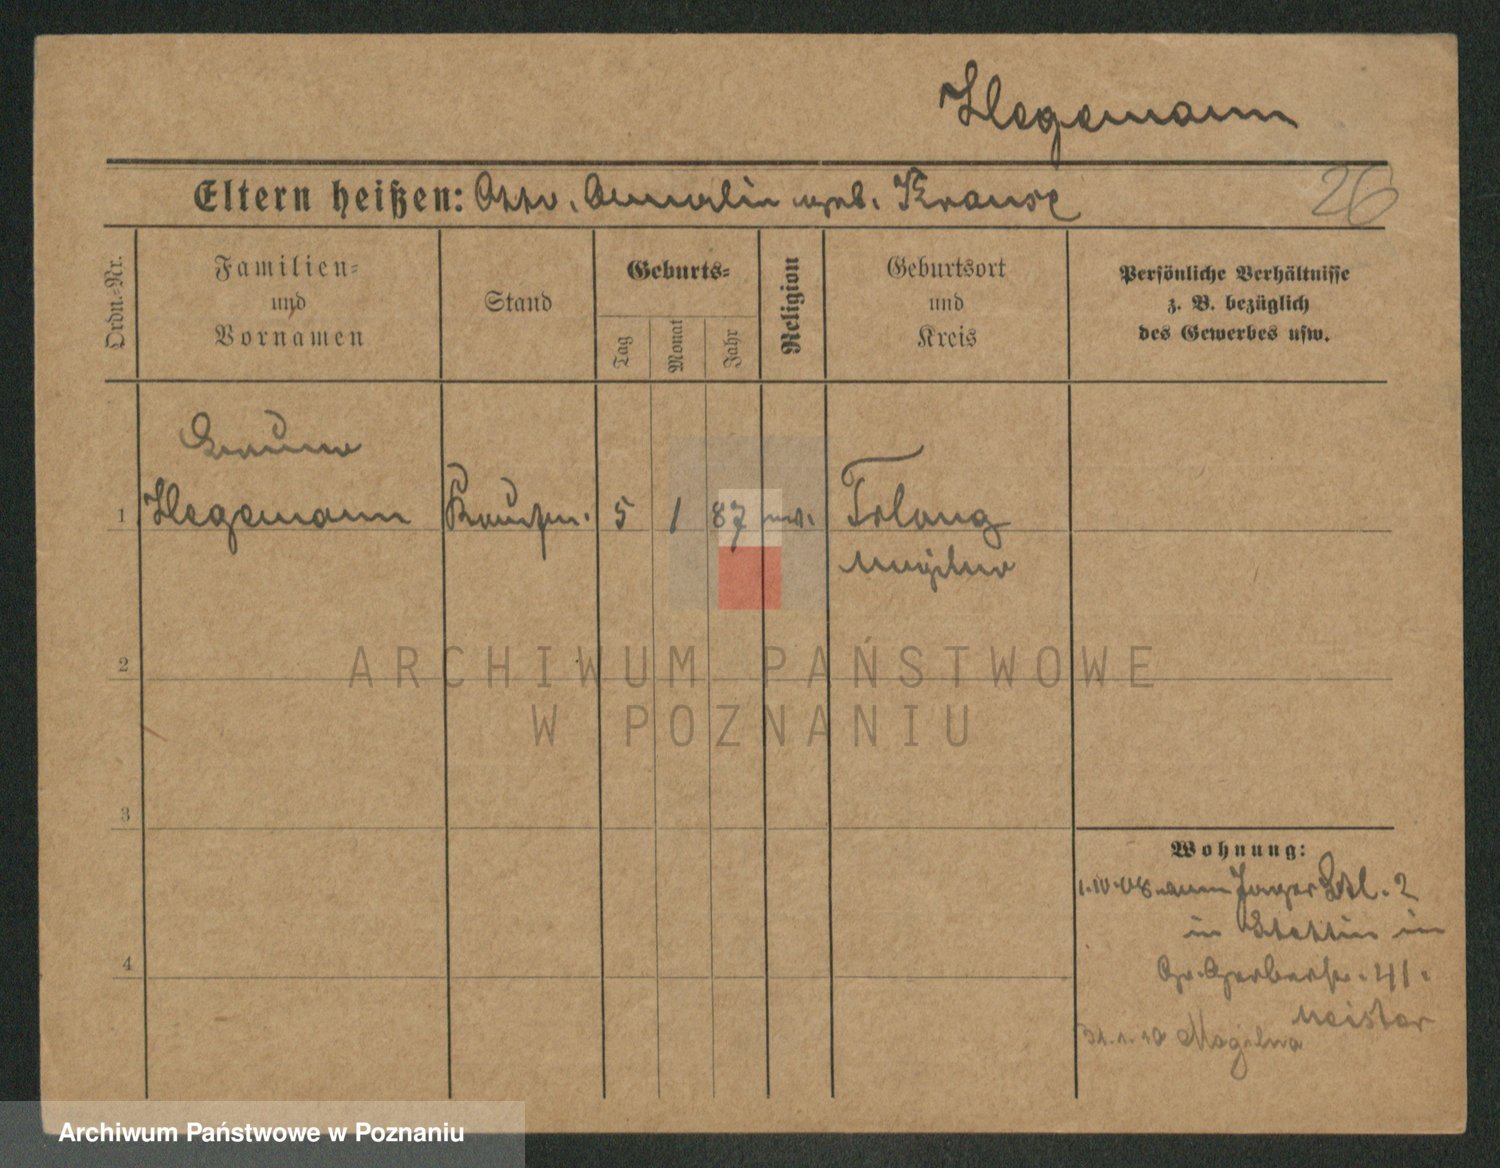 Hegemann
Eltern heißen: Otto, Amalie geb. Krause
26
Ordn.-Nr.
Familien-
und
Vornamen
Stand
Geburts-
Tag
Monat
Jahr
Religion
Geburtsort
und
Kreis
Persönliche Verhältnisse
z. B. bezüglich
des Gewerbes usw.
Bruno
1 Hegemann Kaufm. 5 1 87 ev. Trlong
Mogilno
2
3
4
ARCHIWUM PAŃSTWOWE
W POZNANIU
Wohnung:
1.10.08 zum Jäger Btl. 2
in Stettin in
Gr. Gerberstr. 41.
Meister
31.1.10 Mogilno
Archiwum Państwowe w Poznaniu